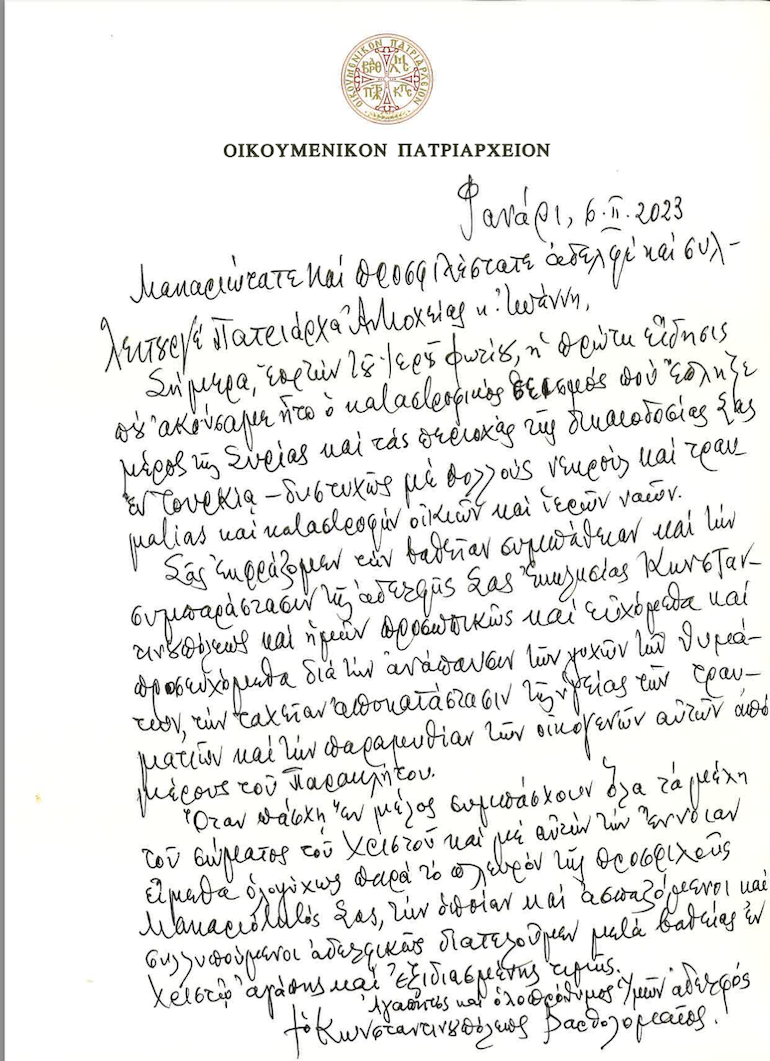 ΟΙΚΟΥΜΕΝΙΚΟΝ ΠΑΤΡΙΑΡΧΕΙΟΝ
ΟΙΚΟΥΜΕΝΙΚΟΝ ΠΑΤΡΙΑΡΧΕΙΟΝ
Φανάρι, 6.II.2023
Μακαριώτατε καί προσφιλέστατε ἀδελφέ καί συλ-
λειτουργέ Πατριάρχα Ἀντιοχείας κ. Ἰωάννη,
Σήμερα, ἑορτήν τοῦ Ἱεροῦ Φωτίου, ἡ πρώτη εἴδησις
πού ἀκούσαμε ἦτο ὁ καταστροφικός σεισμός πού ἔπληξε
μέρος τῆς Συρίας καί τάς περιοχάς τῆς δικαιοδοσίας Σας
ἐν Τουρκίᾳ – δυστυχῶς μέ πολλούς νεκρούς καί τραυ-
ματίας καί καταστροφήν οἰκιῶν καί ἱερῶν ναῶν.
Σᾶς ἐκφράζομεν τήν βαθεῖαν συμπάθειαν καί τήν
συμπαράστασιν τῆς ἀδελφῆς Σας Ἐκκλησίας Κωνσταν-
τινουπόλεως καί ἡμῶν προσωπικῶς καί εὐχόμεθα καί
προσευχόμεθα διά τήν ἀνάπαυσιν τῶν ψυχῶν τῶν θυμά-
των, τήν ταχεῖαν ἀποκατάστασιν τῆς ὑγείας τῶν τραυ-
ματιῶν καί τήν παραμυθίαν τῶν οἰκογενῶν αὐτῶν ἀπό
μέρους τοῦ Παρακλήτου.
Ὅταν πάσχῃ ἕν μέλος συμπάσχουν ὅλα τά μέλη
τοῦ σώματος τοῦ Χριστοῦ καί μέ αὐτήν τήν ἔννοιαν
εἴμεθα ὁλοψύχως παρά τό πλευρόν τῆς προσφιλοῦς
Μακαριότητός Σας, τήν ὁποίαν καί ἀσπαζόμενοι καί
συλλυπούμενοι ἀδελφικῶς διατελοῦμεν μετά βαθείας ἐν
Χριστῷ ἀγάπης καί ἐξιδιασμένης τιμῆς.
Ἀγαπητός καί ὁλοπρόθυμος Ὑμῶν ἀδελφός
†ὁ Κωνσταντινουπόλεως Βαρθολομαῖος.